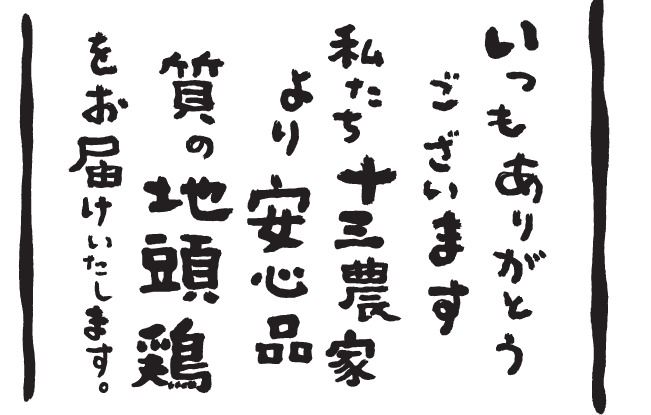 いつもありがとう
ございます
私たち十三農家
より安心品
質の地頭鶏
をお届けいたします。